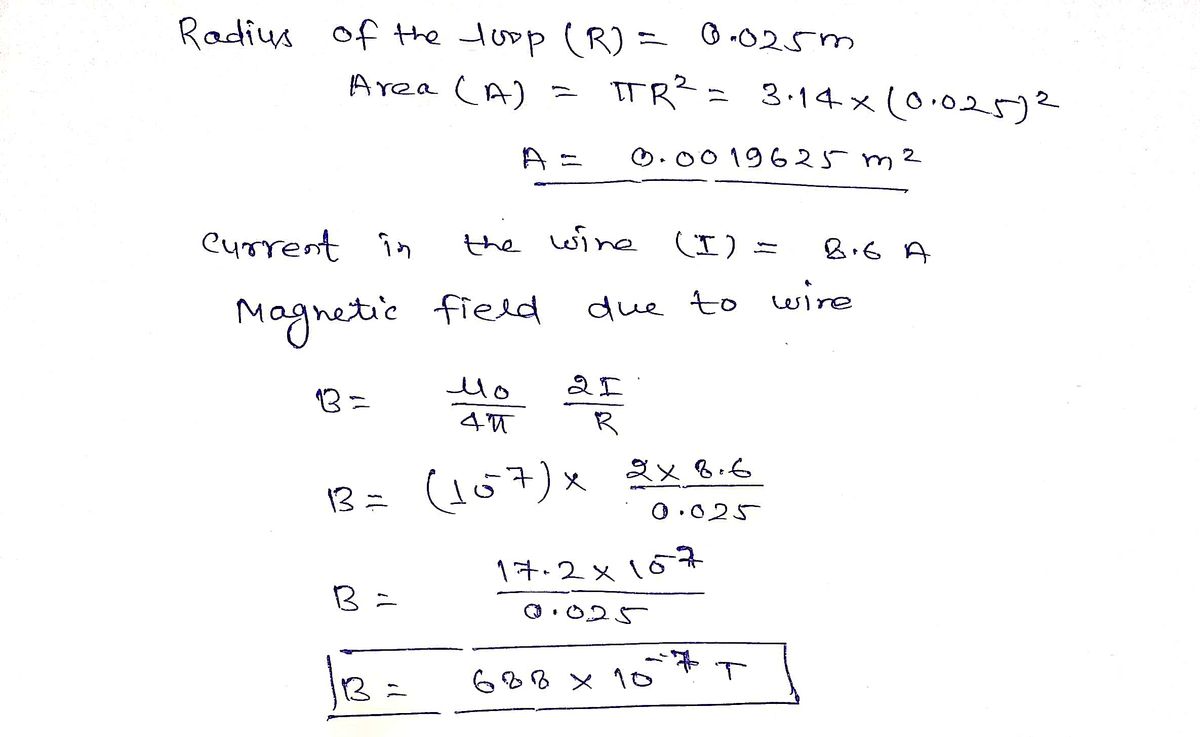 Radius of the loop (R) = 0.025m
Area (A) = πR² = 3.14 × (0.025)²
A = 0.0019625 m²
Current in the wire (I) = 8.6 A
Magnetic field due to wire
B = μ₀/4π 2I/R
B = (10⁻⁷) × 2 × 8.6/0.025
B = 17.2 × 10⁻⁷/0.025
B = 688 × 10⁻⁷ T